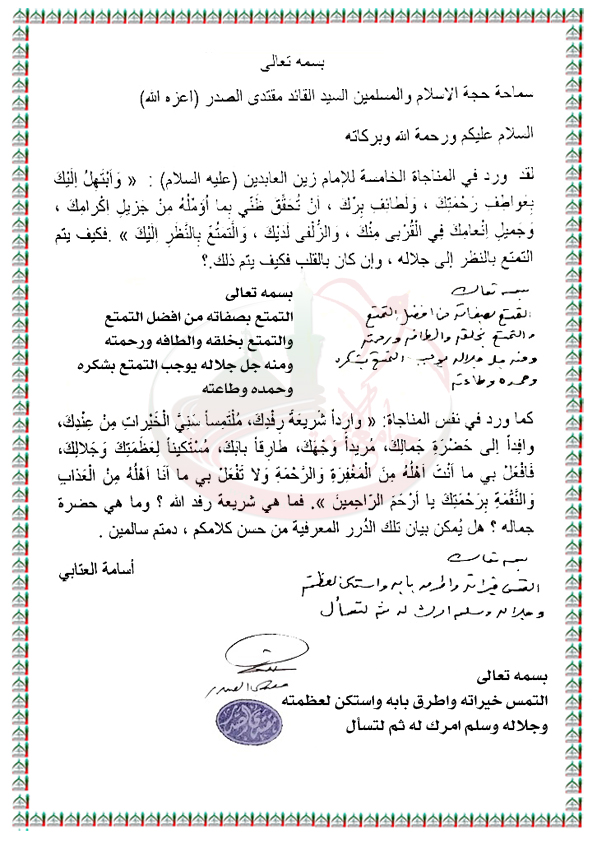 بسمه تعالى
سماحة حجة الاسلام والمسلمين السيد القائد مقتدى الصدر (اعزه الله)
السلام عليكم ورحمة الله وبركاته
لقد ورد في المناجاة الخامسة للإمام زين العابدين (عليه السلام) : « وَاَبْتَهِلُ اِلَيْكَ
بِعَواطِفِ رَحْمَتِكَ ، وَلَطائِفِ بِرِّكَ ، اَنْ تُحَقِّقَ ظَنّي بِما اُؤَمِّلُهُ مِنْ جَزيلِ اِكْرامِكَ ،
وَجَميلِ اِنْعامِكَ فِي الْقُرْبى مِنْكَ ، وَالزُّلْفى لَدَيْكَ ، وَالَّتمَتُّعِ بِالنَّظَرِ اِلَيْكَ » .فكيف يتم
التمتع بالنظر إلى جلاله ، وإن كان بالقلب فكيف يتم ذلك.؟
بسمه تعالى
التمتع بصفاته من افضل التمتع
والتمتع بخلقه والطافه ورحمته
ومنه جل جلاله يوجب التمتع بشكره
وحمده وطاعته
بسمه تعالى
التمتع بصفاته من افضل التمتع
والتمتع بخلقه والطافه ورحمته
ومنه جل جلاله يوجب التمتع بشكره
وحمده وطاعته
كما ورد في نفس المناجاة: « وارِداً شَريعَةَ رِفْدِكَ، مُلْتَمِساً سَنِيَّ الْخَيْراتِ مِنْ عِنْدِكَ،
وافِداً اِلى حَضْرَةِ جَمالِكَ، مُريداً وَجْهَكَ، طارِقاً بابَكَ، مُسْتَكيناً لِعَظَمَتِكَ وَجَلالِكَ،
فَافْعَلْ بي ما اَنْتَ اَهْلُهُ مِنَ الْمَغْفِرَةِ وَالرَّحْمَةِ وَلا تَفْعَلْ بي ما اَنَا اَهْلُهُ مِنْ الْعَذابِ
وَالنَّقْمَةِ بِرَحْمَتِكَ يا اَرْحَمَ الرّاحِمينَ ». فما هي شريعة رفد الله ؟ وما هي حضرة
جماله ؟ هل يُمكن بيان تلك الدُرر المعرفية من حسن كلامكم ، دمتم سالمين .
أسامة العتابي
بسمه تعالى
التمس خيراته واطرق بابه واستكن لعظمته
وجلاله وسلم امرك له ثم لتسأل
مقتدى الصدر
بسمه تعالى
التمس خيراته واطرق بابه واستكن لعظمته
وجلاله وسلم امرك له ثم لتسأل